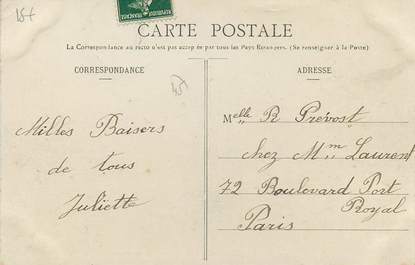 15+
CARTE POSTALE
La Correspondance au recto n'est pas acceptée par tous les Pays Étrangers. (Se renseigner à la Poste)
CORRESPONDANCE
ADRESSE
Milles Baisers
de tous
Juliette
Melle R Prévost
chez Mm Laurent
72 Boulevard Port
Royal
Paris